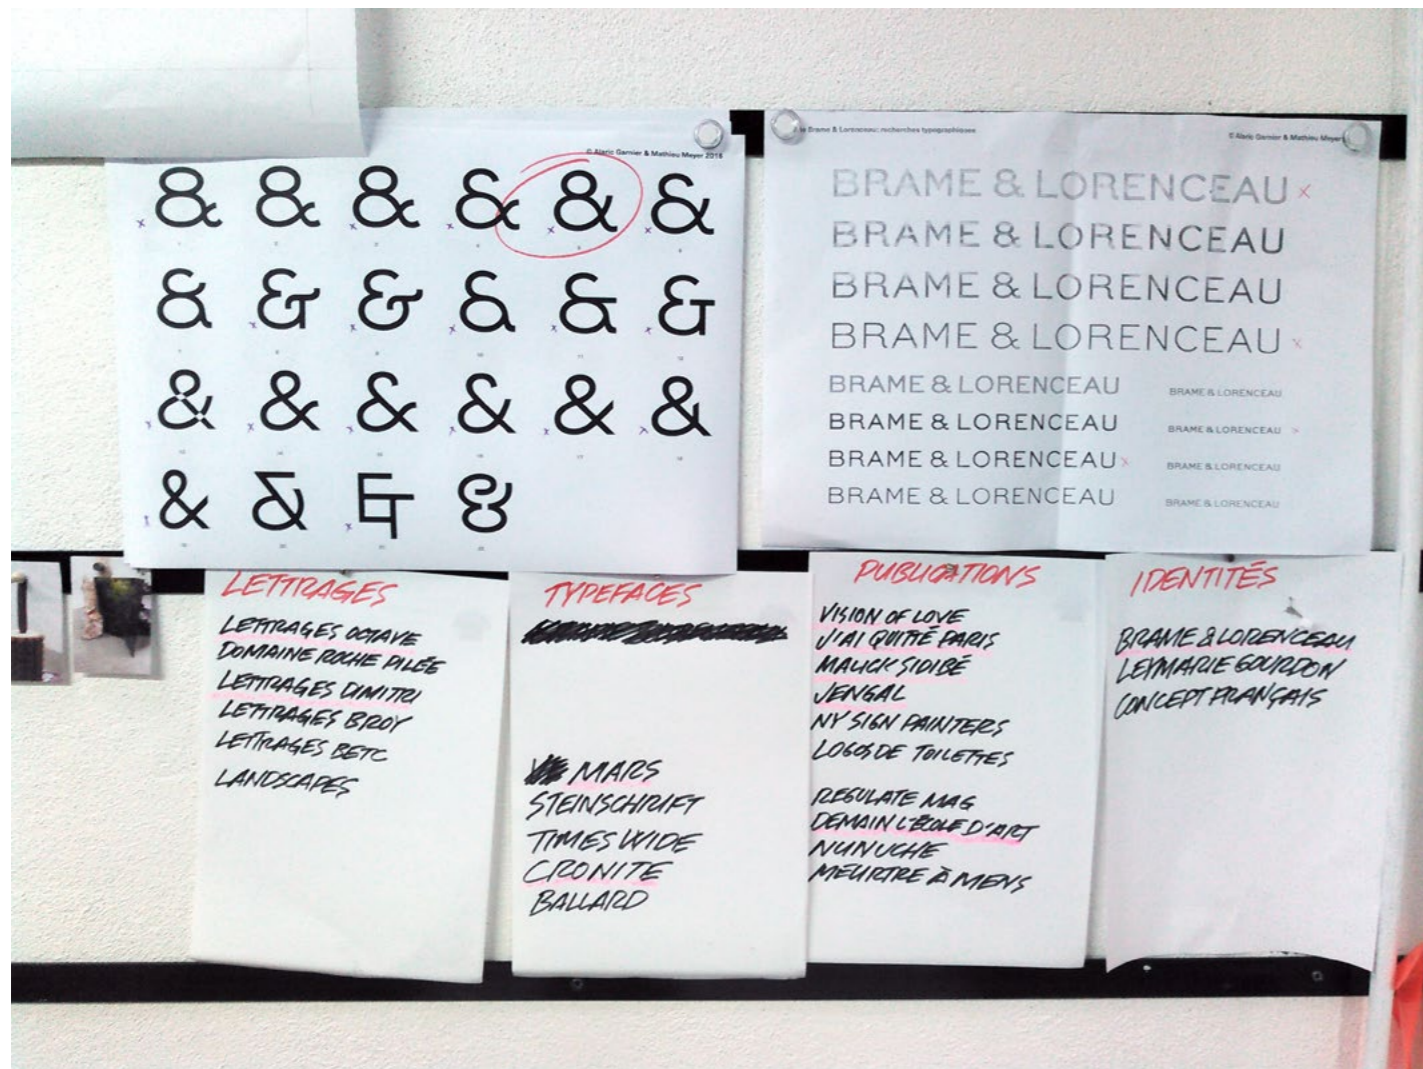 © Alaric Garnier & Mathieu Meyer 2016
& & & & & &
& & & & & &
& & & & & &
& & & &
Brame & Lorenceau: recherches typographiques
© Alaric Garnier & Mathieu Meyer
BRAME & LORENCEAU
BRAME & LORENCEAU
BRAME & LORENCEAU
BRAME & LORENCEAU
BRAME & LORENCEAU
BRAME & LORENCEAU
BRAME & LORENCEAU
BRAME & LORENCEAU
BRAME & LORENCEAU
BRAME & LORENCEAU
BRAME & LORENCEAU
BRAME & LORENCEAU
LETTRAGES
LETTRAGES OCTAVE
DOMAINE ROCHE PILÉE
LETTRAGES DIMITRI
LETTRAGES BROY
LETTRAGES BETC
LANDSCAPES
TYPEFACES
MARS
STEINSCHRIFT
TIMES WIDE
CRONITE
BALLARD
PUBLICATIONS
VISION OF LOVE
J'AI QUITTÉ PARIS
MALICK SIDIBÉ
JENGAL
NY SIGN PAINTERS
LOGOS DE TOILETTES
REGULATE MAG
DEMAIN L'ÉCOLE D'ART
NUNUCHE
MEURTRE À MENS
IDENTITÉS
BRAME & LORENCEAU
LEYMARIE GOURDON
CONCEPT FRANÇAIS